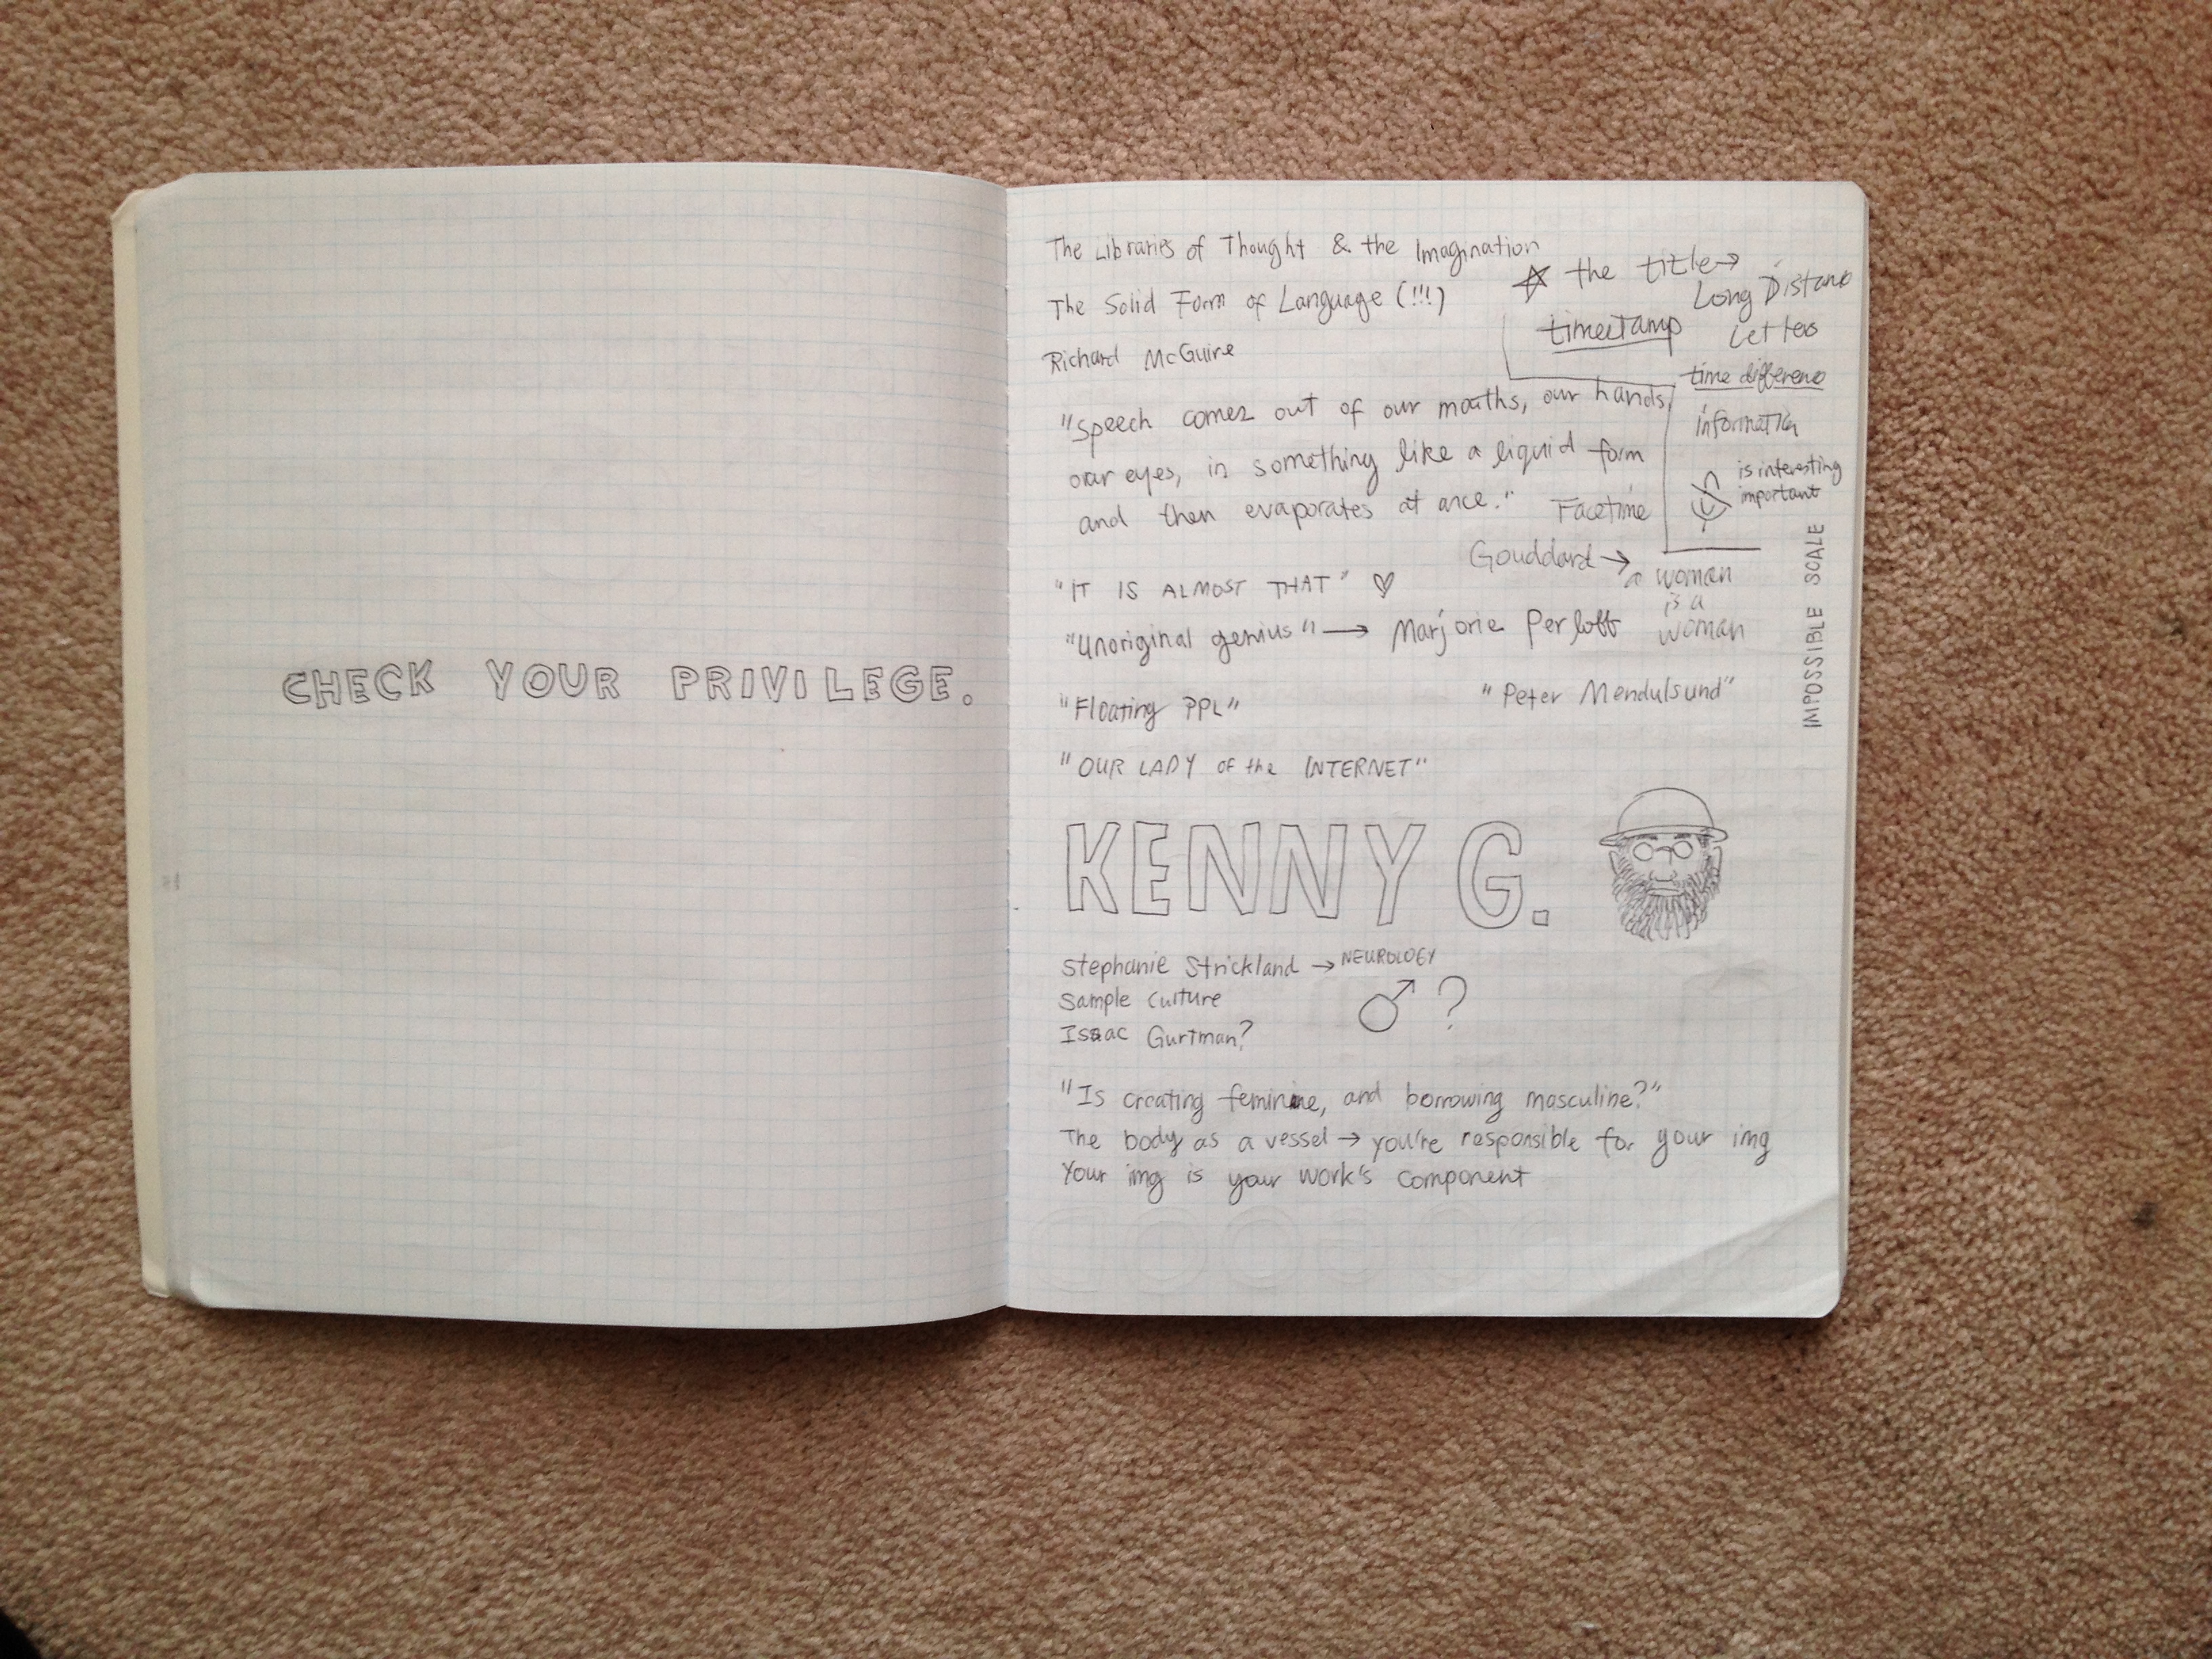 CHECK YOUR PRIVILEGE.
The Libraries of Thought & the Imagination
The Solid Form of Language (!!!)
Richard McGuire
the title→
Long Distanc
Letters
timestamp
time differenc
information
is interesting
important
"Speech comes out of our mouths, our hands,
our eyes, in something like a liquid form
and then evaporates at once."
Facetime
Gouddard →
a woman
is a
woman
IMPOSSIBLE SCALE
"IT IS ALMOST THAT"
"Unoriginal genius" → Marjorie Perloff
"Floating PPL"
"Peter Mendulsund"
"OUR LADY of the INTERNET"
KENNY G.
Stephanie Strickland → NEUROLOGY
Sample Culture
♂ ?
Isaac Gurtman?
"Is creating feminine, and borrowing masculine?"
The body as a vessel → you're responsible for your img
Your img is your work's component